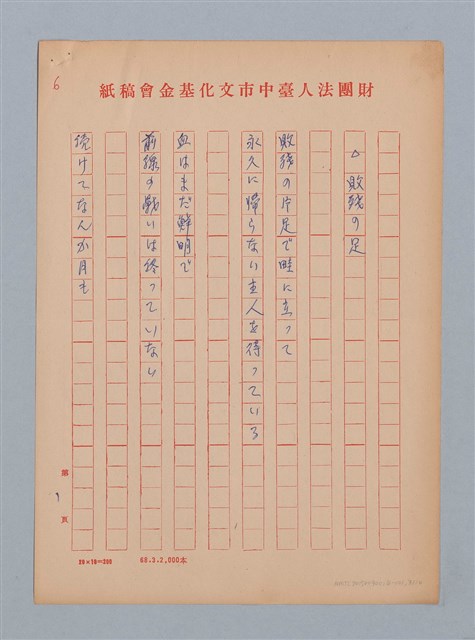 6
財團法人臺中市文化基金會稿紙
△敗残の足
敗残の片足で畦に立って
永久に帰らない主人を待っている
血はまだ鮮明で
前線の戦いは終っていない
続けてなんか月も
第
頁
20×10=200
68.3.2,000本